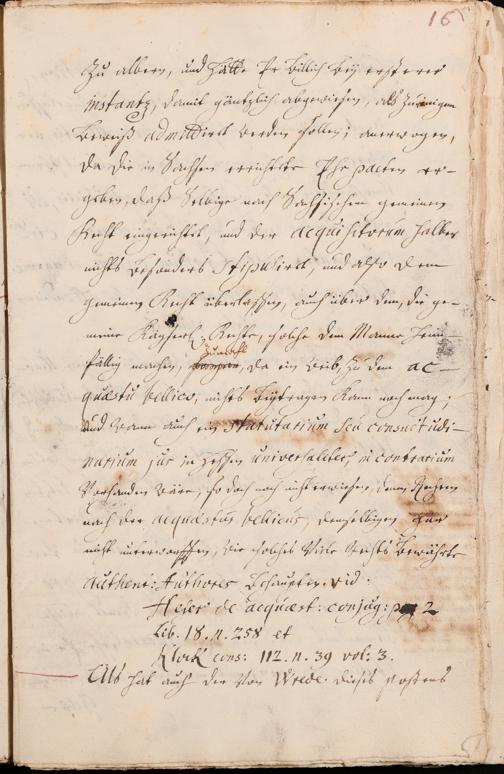 16
Zu albern, und hätte Er billich beÿ ersterer
instantz, damit gäntzlich abgewiesen, als zu einigem
beweiß admittirt werden sollen; anerwogen,
da die in Sachsen errichtete Ehe pacten er-
geben, daß selbige nach Sächsischem gemeinen
Recht eingerichtet, und der acquisitorum halber
nichts besonders stipulirt, und also dem
gemeinen Recht überlassen, auch über dem, die ge-
meine Kaÿserl. Rechte, solche dem Manne heim
fällig machen, zumahl, da ein Weib, zu dem ac-
quæstu bellico, nichts beÿtragen kann noch mag;
und wann auch ein statutarium seu consuetudi-
narium jus in Hessen universaliter in contrarium
vorhanden wäre, so doch noch nicht erwiesen, denen Rechten
nach der acquæstus bellicus, demselbigen gar
nicht unterworffen, wie solches viele Rechts bewährte
authent: Authores behaupten. vid.
Heser de acquæst: conjug: 2
Lib. 18. n. 258 et
Klock cons: 112. n. 39 vol: 3.
Als hat auch der von Wrede dieses